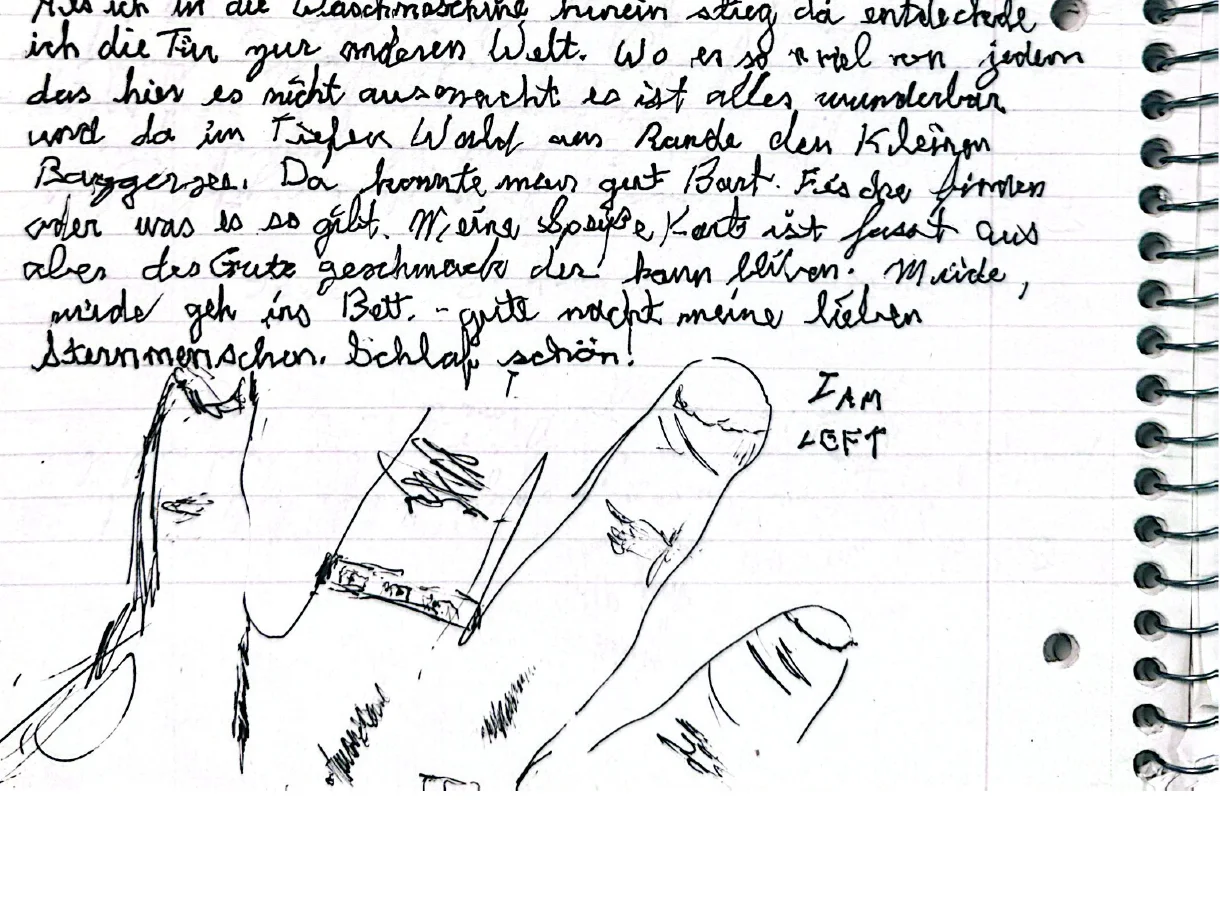 Als ich in die Waschmaschine hinein stieg da entdeckde
ich die Tür zur anderen Welt. Wo es so viel von jedem
das hier es nicht ausmacht es ist alles wunderbar
und da im Tiefen Wald am Rande des Kleinen
Baggersees. Da konnte man gut Bart. Fische finden
oder was es so gibt. Meine Speiße Karte ist fasst aus
aber das Gute geschmack der kann bliben. Müde,
müde geh ins Bett. - gute nacht meine lieben
Sternmenschen. Schlaf schön!
I AM
LEFT